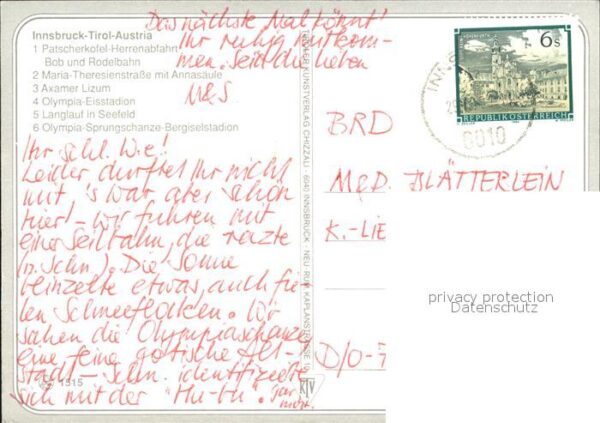 Innsbruck-Tirol-Austria
1 Patscherkofel-Herrenabfahrt
Bob und Rodelbahn
2 Maria-Theresienstraße mit Annasäule
3 Axamer Lizum
4 Olympia-Eisstadion
5 Langlauf in Seefeld
6 Olympia-Sprungschanze-Bergiselstadion
Das nächste Mal könnt'
Ihr ruhig mitkom-
men. Seid die lieben
M&S
Ihr schl. We!
Leider durftet Ihr nicht
mit, 's war aber schön
hier! - wir fuhren mit
einer Seilbahn, die
Die Sonne
blinzelte etwas, auch fie-
len Schneeflocken. Wir
sahen die Olympiaschanze
eine feine gotische Alt-
stadt - Schn. identifizierte
sich mit der "Hu-hu".
1515
TIROLER KUNSTVERLAG CHIZZALI · 6040 INNSBRUCK - NEU RUM KAPLANSTRASSE
KTV
6 S
REPUBLIK ÖSTERREICH
INNS
6010
BRD
M&D. BLÄTTERLEIN
K.-LIE
D/O-
privacy protection
Datenschutz